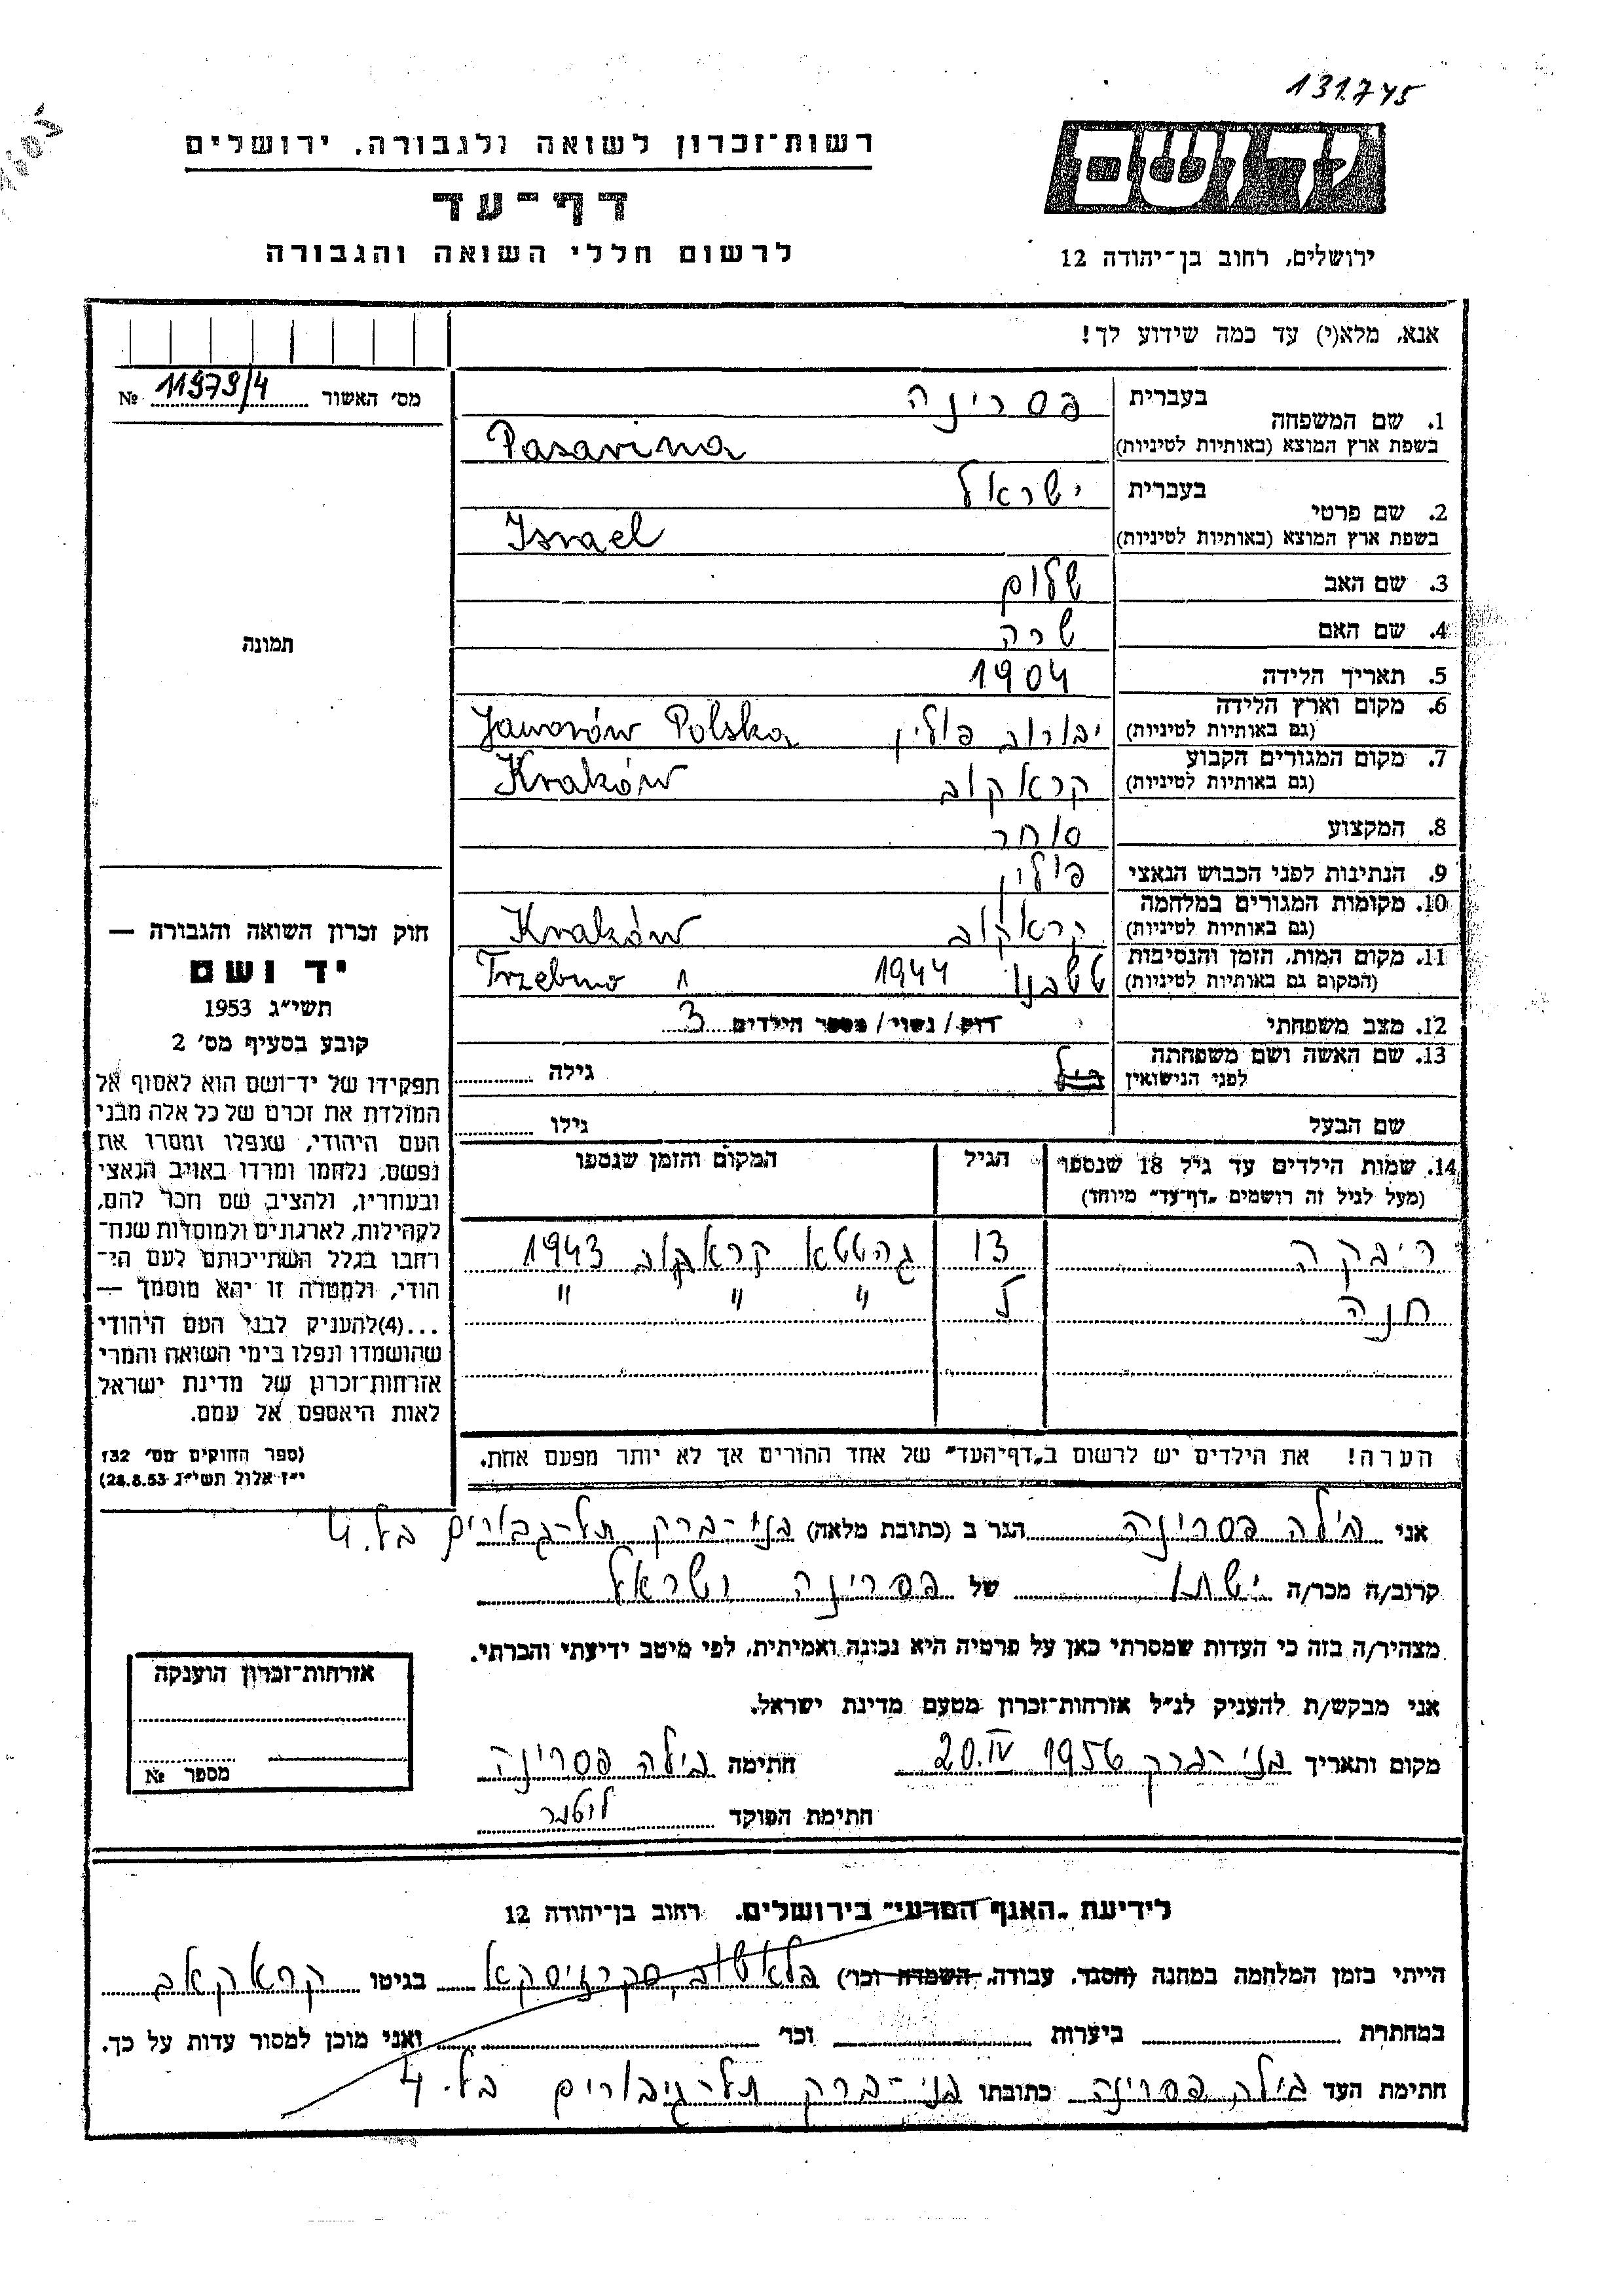 131.745
רשות־זכרון לשואה ולגבורה, ירושלים
יד ושם
דף־עד
לרשום חללי השואה והגבורה
ירושלים, רחוב בן־יהודה 12
אנא, מלא(י) עד כמה שידוע לך!
מס׳ האשור 11979/4 №
1. שם המשפחה
בעברית פסרינה
בשפת ארץ המוצא (באותיות לטיניות) Pasarina
2. שם פרטי
בעברית ישראל
בשפת ארץ המוצא (באותיות לטיניות) Israel
3. שם האב שלום
4. שם האם שרה
5. תאריך הלידה 1904
6. מקום וארץ הלידה
(גם באותיות לטיניות) יבורוב פולין Jaworów Polska
7. מקום המגורים הקבוע
(גם באותיות לטיניות) קראקוב Kraków
8. המקצוע סוחר
9. הנתינות לפני הכבוש הנאצי פולין
10. מקומות המגורים במלחמה
(גם באותיות לטיניות) קראקוב Kraków
11. מקום המות, הזמן והנסיבות
(המקום גם באותיות לטיניות) 1944
12. מצב משפחתי רווק / נשוי / מספר הילדים 3
13. שם האשה ושם משפחתה
לפני הנישואין גילה
שם הבעל גילו
תמונה
14. שמות הילדים עד גיל 18 שנספו הגיל המקום והזמן שנספו
(מעל לגיל זה רושמים „דף־עד" מיוחד)
ריבקה 13 גהטטא קראקוב 1943
חנה 5 " " "
הערה! את הילדים יש לרשום ב„דף־העד" של אחד ההורים אך לא יותר מפעם אחת.
חוק זכרון השואה והגבורה —
יד ושם
תשי״ג 1953
קובע בסעיף מס׳ 2
תפקידו של יד־ושם הוא לאסוף אל
המולדת את זכרם של כל אלה מבני
העם היהודי, שנפלו ומסרו את
נפשם, נלחמו ומרדו באויב הנאצי
ובעוזריו, ולהציב שם וזכר להם,
לקהילות, לארגונים ולמוסדות שנח־
רחבו בגלל השתייכותם לעם הי־
הודי, ולמטרה זו יהא מוסמך —
...(4)להעניק לבני העם היהודי
שהושמדו ונפלו בימי השואה והמרי
אזרחות־זכרון של מדינת ישראל
לאות היאספם אל עמם.
(ספר החוקים מס׳ 132
י״ז אלול תשי״ג 28.8.53)
אני בילה פסרינה הגר ב (כתובת מלאה) בני־ברק תל־גבורים בל. 4
קרוב/ה מכר/ה של פסרינה ישראל
מצהיר/ה בזה כי העדות שמסרתי כאן על פרטיה היא נכונה ואמיתית, לפי מיטב ידיעתי והכרתי.
אני מבקש/ת להעניק לנ״ל אזרחות־זכרון מטעם מדינת ישראל.
מקום ותאריך בני־ברק 20.IV 1956 חתימה בילה פסרינה
חתימת הפוקד
אזרחות־זכרון הוענקה
מספר №
לידיעת „האגף המדעי" בירושלים, רחוב בן־יהודה 12
הייתי בזמן המלחמה במחנה (הסגר, עבודה, השמדה וכו׳) בגיטו קראקאב
במחתרת ביערות וכו׳ ואני מוכן למסור עדות על כך.
חתימת העד בילה פסרינה כתובתו בני־ברק תל־גיבורים בל. 4